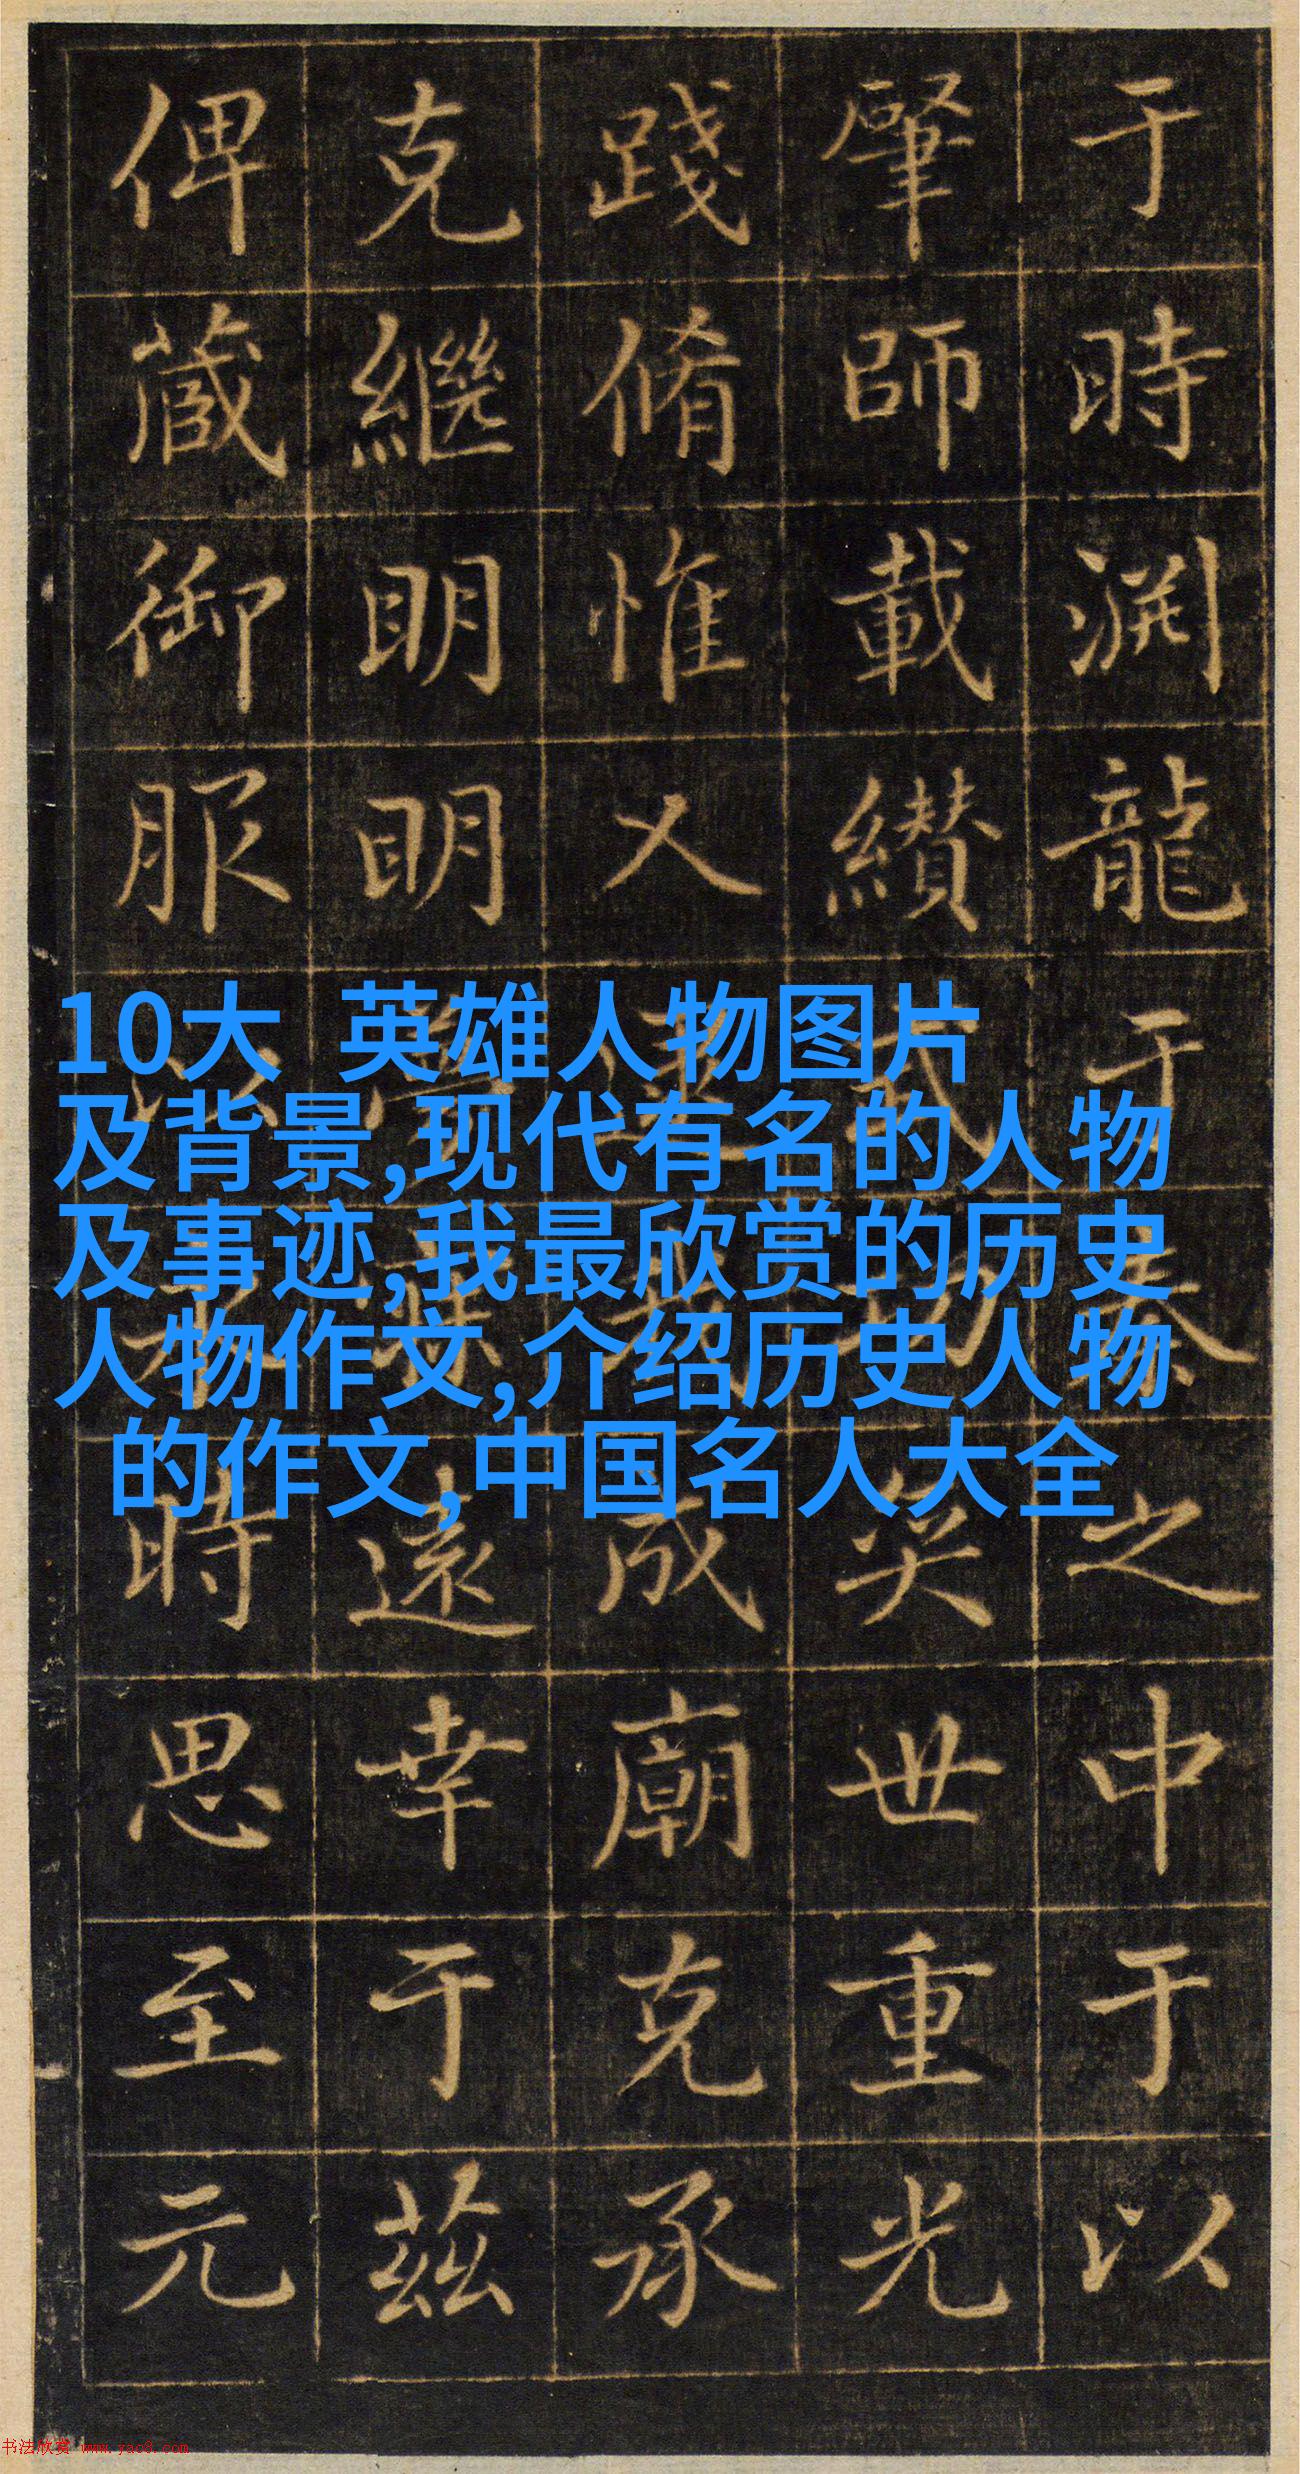 于時渊龍于之中于以
肇師載纘武功奕世重光
踐脩惟乂成廟克承
克繼明明遠幸于茲
俾藏御服時思至元
10大 英雄人物图片
及背景,现代有名的人物
及事迹,我最欣赏的历史
人物作文,介绍历史人物
的作文,中国名人大全
书法欣赏 www.yac8.com